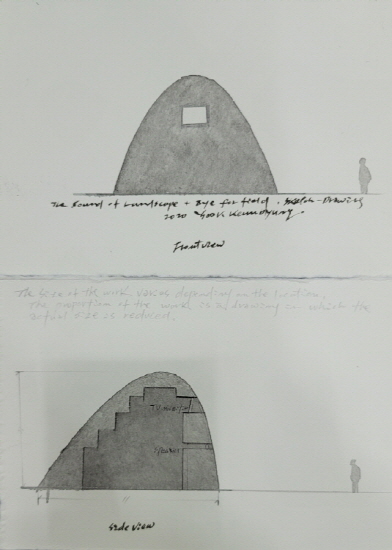 The Sound of Landscape + Eye for field . Sketch-Drawing
2020
Front view
The Size of the work varies depending on the location.
The proportion of the work is in drawing in which the
actual size is reduced.
side view